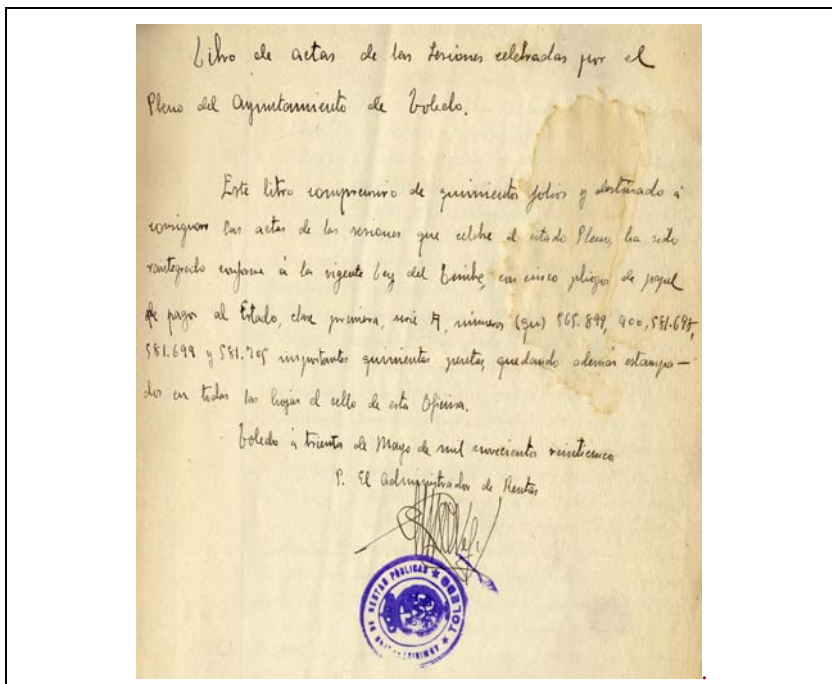 Libro de actas de las sesiones celebradas por el
Pleno del Ayuntamiento de Toledo.
Este libro comprensivo de quinientos folios y destinado á
consignar las actas de las sesiones que celebre el citado Pleno, ha sido
reintegrado conforme á la vigente Ley del Timbre, con cinco pliegos de papel
de pagos al Estado, clase primera, serie A, números (qu) 565.899, 900, 581.698,
581.699 y 581.705 importantes quinientas pesetas, quedando además estampa-
dos en todas las hojas el sello de esta Oficina.
Toledo á treinta de Mayo de mil novecientos veinticinco
P. El Administrador de Rentas
ADMINISTRACION DE RENTAS PÚBLICAS ★ TOLEDO ★